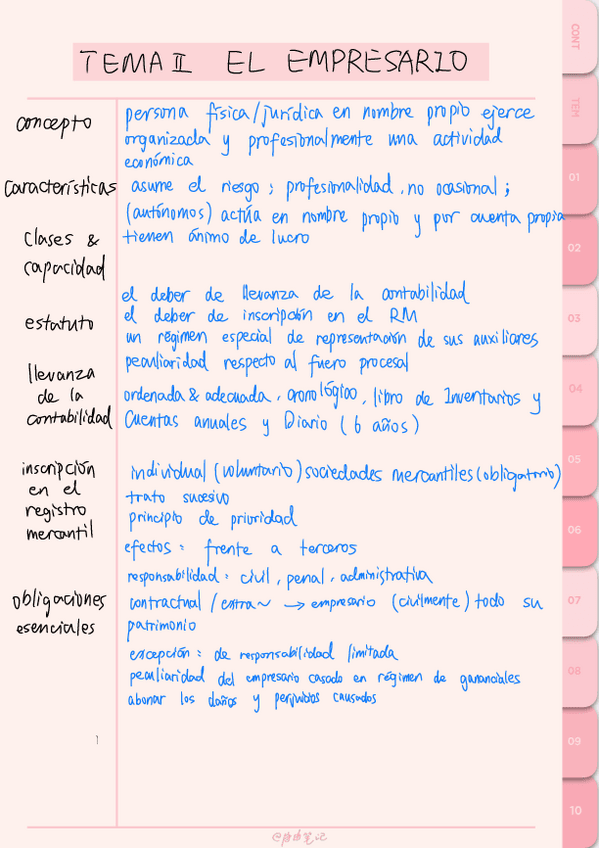 TEMA II EL EMPRESARIO
concepto
persona física/jurídica en nombre propio ejerce
organizada y profesionalmente una actividad
económica
características
asume el riesgo ; profesionalidad, no ocasional ;
(autónomos) actúa en nombre propio y por cuenta propia
tienen ánimo de lucro
Clases &
capacidad
estatuto
el deber de llevanza de la contabilidad
el deber de inscripción en el RM
un régimen especial de representación de sus auxiliares
peculiaridad respecto al fuero procesal
llevanza
de la
contabilidad
ordenada & adecuada, cronológico, libro de Inventarios y
Cuentas anuales y Diario (6 años)
inscripción
en el
registro
mercantil
individual (voluntario) sociedades mercantiles (obligatorio)
trato sucesivo
principio de prioridad
efectos : frente a terceros
responsabilidad : civil, penal, administrativa
obligaciones
esenciales
contractual / extra~ → empresario (civilmente) todo su
patrimonio
excepción : de responsabilidad limitada
peculiaridad del empresario casado en régimen de gananciales
abonar los daños y perjuicios causados
1
CONT
TEM
01
02
03
04
05
06
07
08
09
10